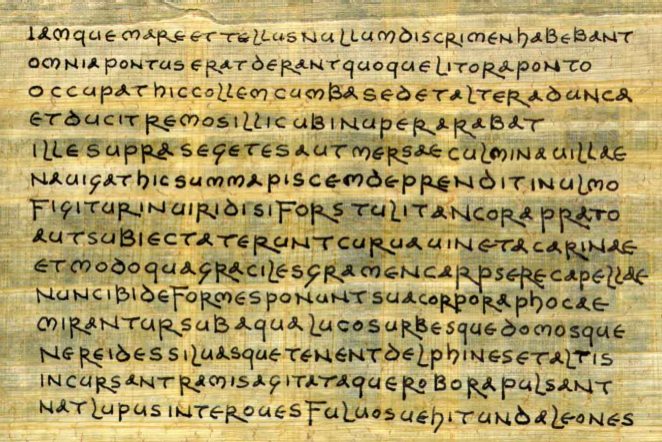 IAMQUEMAREETTELLUSNULLUMDISCRIMENHABEBANT
OMNIAPONTUSERATDERANTQUOQUELITORAPONTO
OCCUPATHICCOLLEMCUMBASEDETALTERADUNCA
ETDUCITREMOSILLICUBINUPERARABAT
ILLESUPRASEGETESAUTMERSAECULMINAUILLAE
NAUIGATHICSUMMAPISCEMDEPRENDITINULMO
FIGITURINUIRIDISIFORSTULITANCORAPRATO
AUTSUBIECTATERUNTCURUAUINETACARINAE
ETMODOQUAGRACILESGRAMENCARPSERECAPELLAE
NUNCIBIDEFORMESPONUNTSUACORPORAPHOCAE
MIRANTURSUBAQUALUCOSURBESQUEDOMOSQUE
NEREIDESSILUASQUETENENTDELPHINESETALTIS
INCURSANTRAMISAGITATAQUEROBORAPULSANT
NATLUPUSINTEROUESFULUOSUEHITUNDALEONES